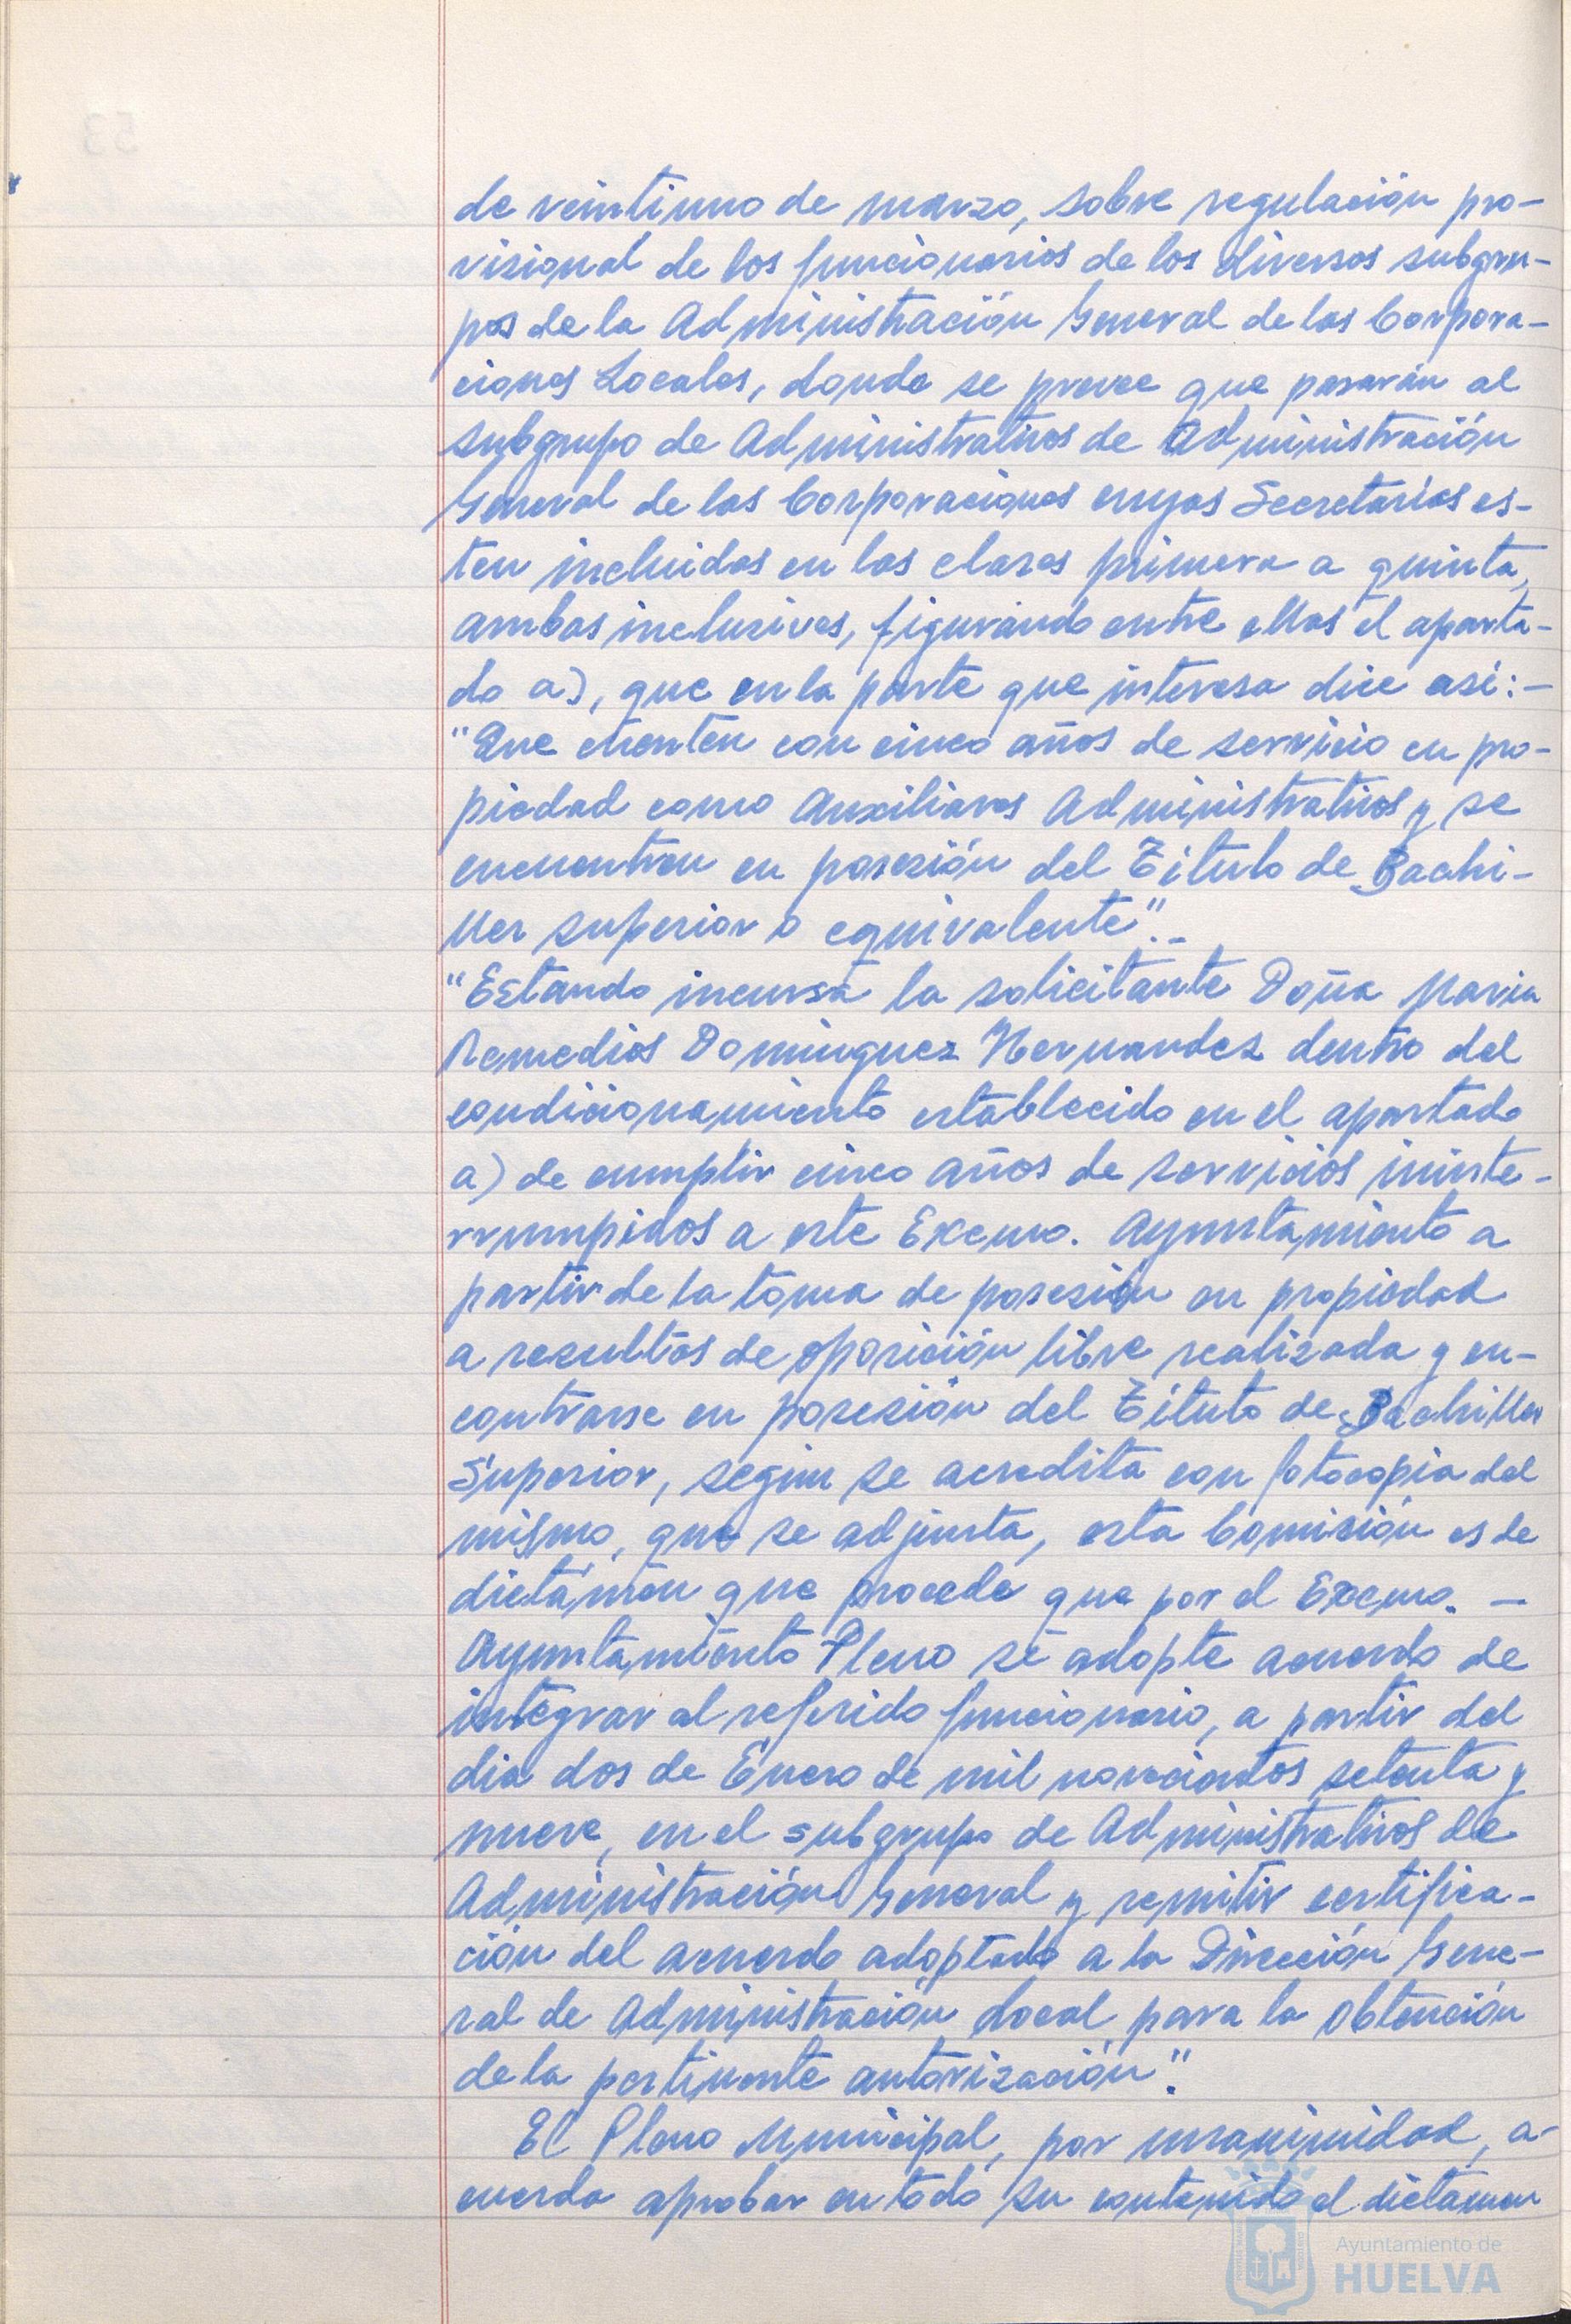 de veintiuno de marzo, sobre regulación pro-
visional de los funcionarios de los diversos subgru-
pos de la Administración General de las Corpora-
ciones Locales, donde se prevee que pasarán al
subgrupo de Administrativos de Administración
General de las Corporaciones cuyas Secretarías es-
ten incluidas en las clases primera a quinta,
ambas inclusives, figurando entre ellas el aparta-
do a), que en la parte que interesa dice así:-
"Que cuenten con cinco años de servicio en pro-
piedad como Auxiliares Administrativos y se
encuentren en posesión del Título de Bachi-
ller superior o equivalente".-
"Estando incursa la solicitante Doña Maria
Remedios Dominguez Hernandez dentro del
condicionamiento establecido en el apartado
a) de cumplir cinco años de servicios ininte-
rrumpidos a este Excmo. Ayuntamiento a
partir de la toma de posesión en propiedad
a resultas de oposición libre realizada y en-
contrarse en posesión del Título de Bachiller
Superior, según se acredita con fotocopia del
mismo, que se adjunta, esta Comisión es de
dictámen que procede que por el Excmo. -
Ayuntamiento Pleno se adopte acuerdo de
integrar al referido funcionario, a partir del
dia dos de Enero de mil novecientos setenta y
nueve, en el subgrupo de Administrativos de
Administración General y remitir certifica-
ción del acuerdo adoptado a la Dirección Gene-
ral de Administración Local para la obtención
de la pertinente autorización".
El Pleno Municipal, por unanimidad, a-
cuerda aprobar en todo su contenido el dictamen
Ayuntamiento de
HUELVA